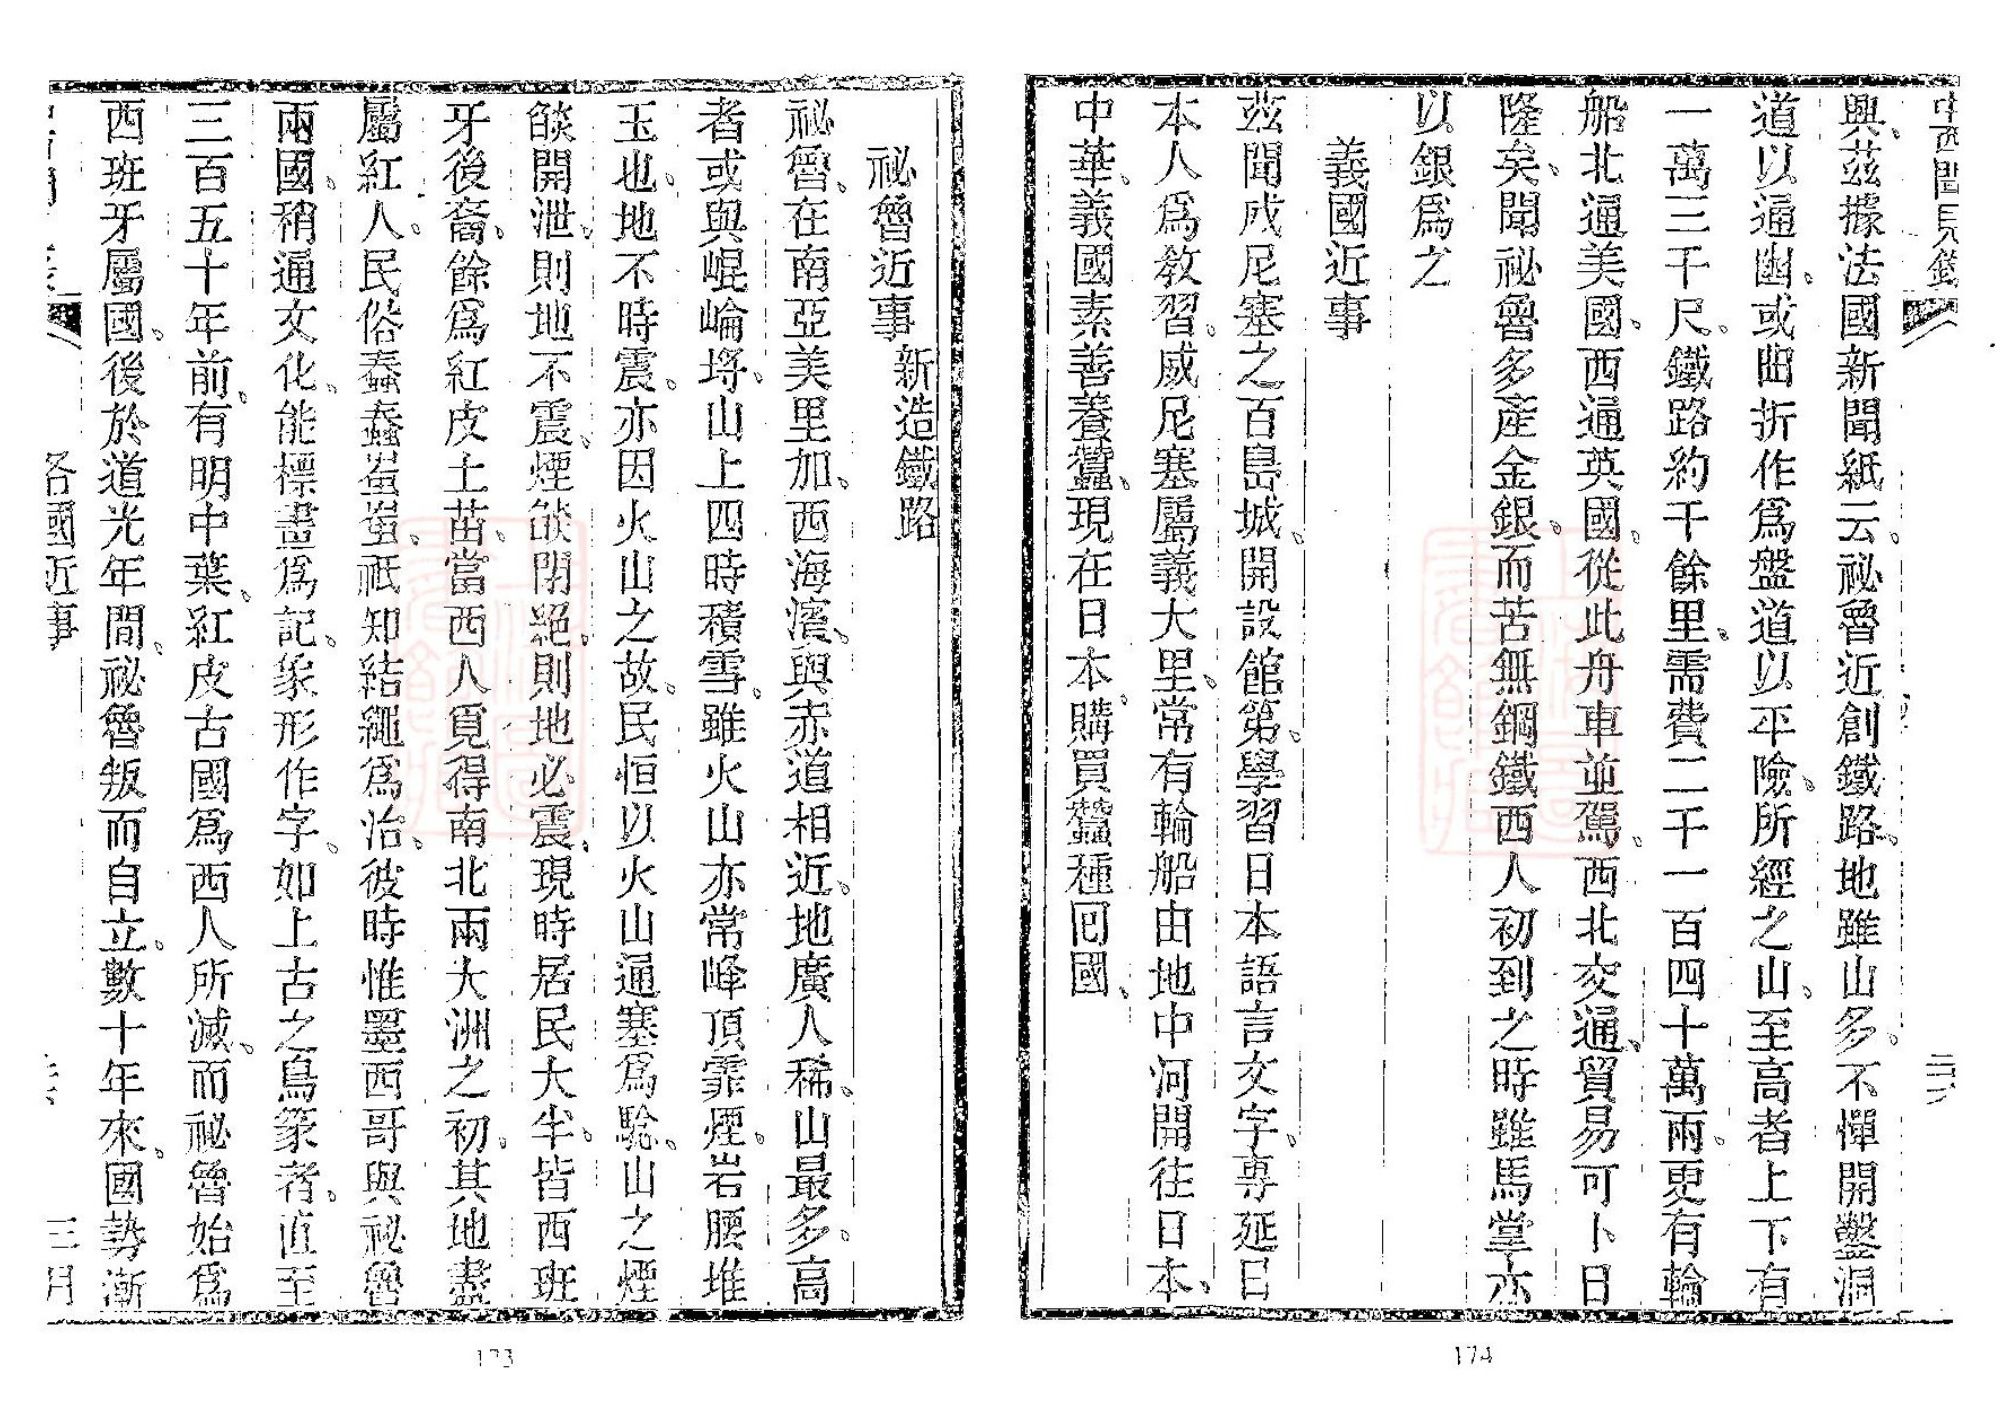 祕魯近事　新造鐵路
祕魯、在南亞美里加、西海濱、與赤道相近、地廣人稀、山最多、高
者或與崐崘埒、山上四時積雪、雖火山亦常峰頂霏煙、岩腰堆
玉也、地不時震、亦因火山之故、民恒以火山通塞爲騐、山之煙
燄開泄、則地不震、煙燄閉絕、則地必震、現時居民大半、皆西班
牙後裔、餘爲紅皮土苗、當西人覓得南北兩大洲之初、其地盡
屬紅人、民俗蠢蠢蚩蚩、祇知結繩爲治、彼時惟墨西哥與祕魯
兩國、稍通文化、能標畫爲記、象形作字、如上古之鳥篆者、直至
三百五十年前、有明中葉、紅皮古國爲西人所滅、而祕魯始爲
西班牙屬國、後於道光年間、祕魯叛而自立、數十年來、國勢漸
各國近事　三月
173
中西聞見錄
興、茲據法國新聞紙云、祕魯近創鐵路、地雖山多、不憚開鑿洞
道以通幽、或曲折作爲盤道以平險、所經之山、至高者上下有
一萬三千尺、鐵路約千餘里、需費二千一百四十萬兩、更有輪
船北通美國、西通英國、從此舟車並駕、西北交通、貿易可卜日
隆矣、聞祕魯多產金銀、而苦無鋼鐵、西人初到之時、雖馬掌亦
以銀爲之
義國近事
茲聞威尼塞之百島城、開設館第、學習日本語言文字、專延日
本人爲教習、威尼塞屬義大里、常有輪船由地中河開往日本、
中華、義國素善養蠶、現在日本、購買蠶種囘國、
174